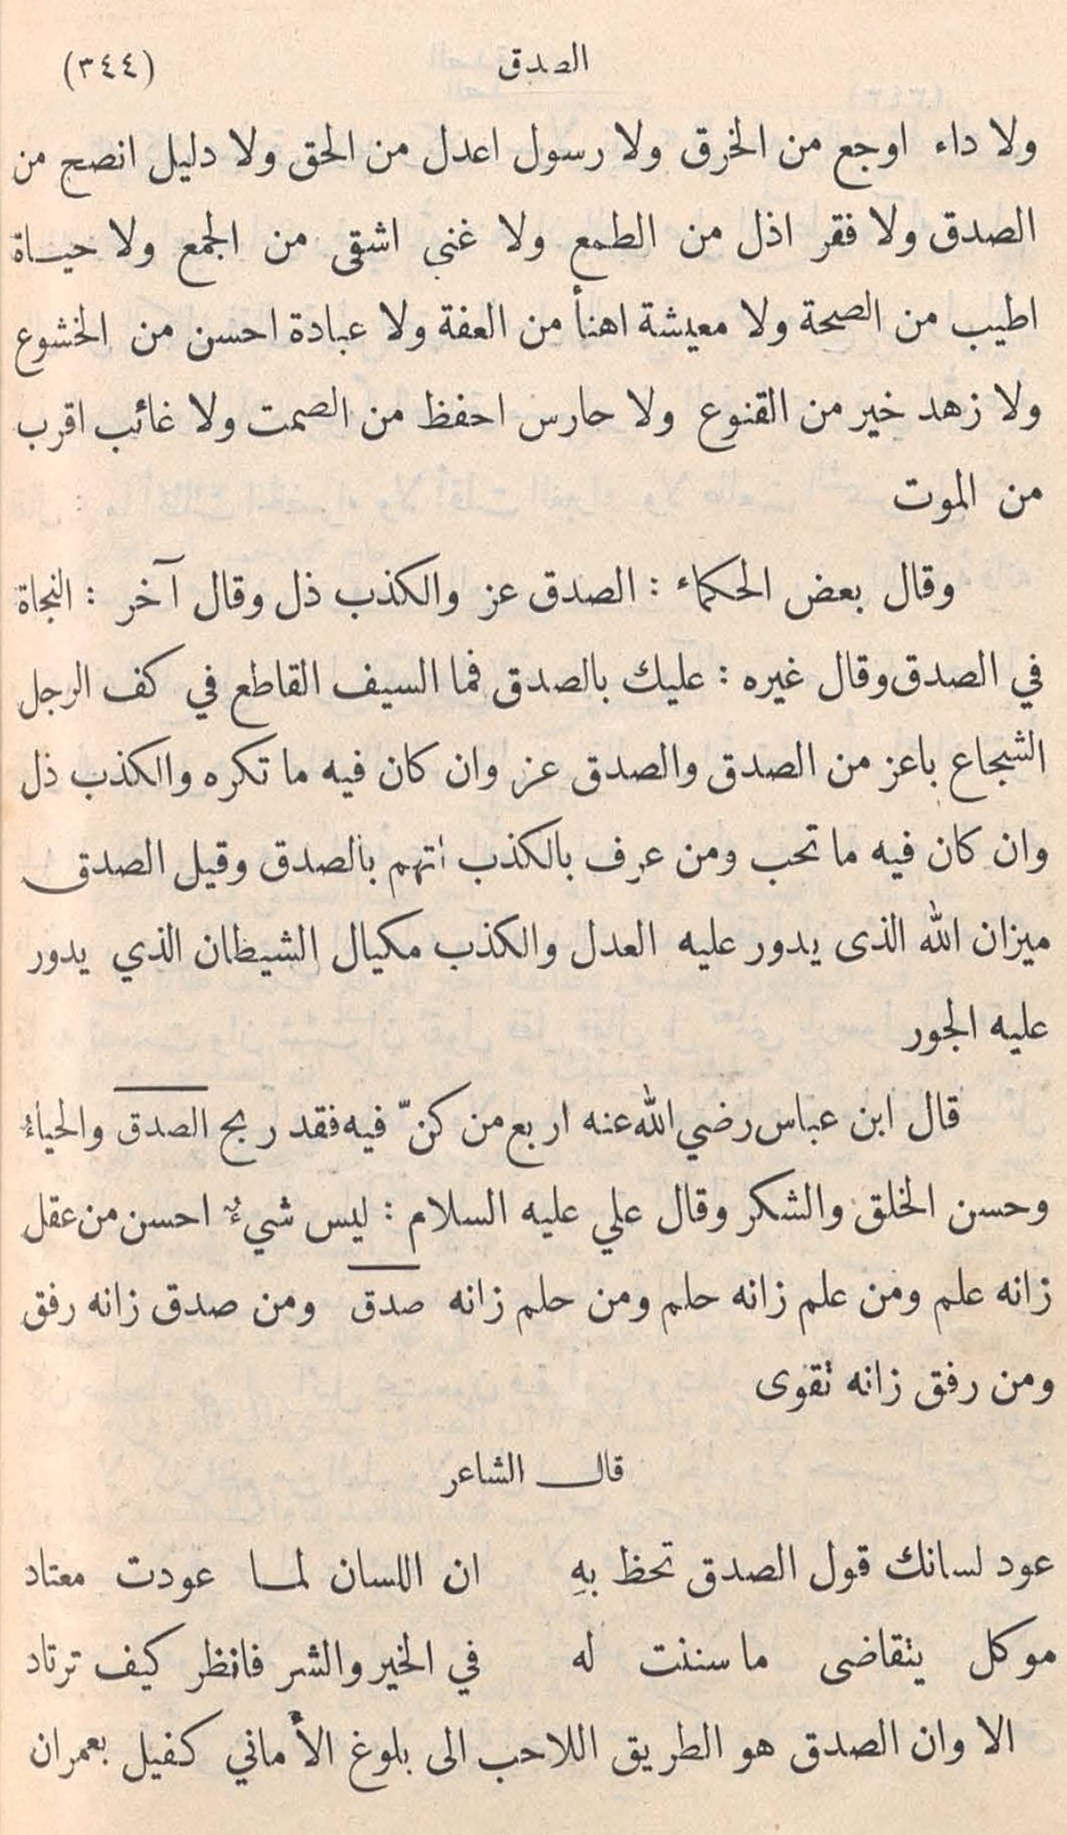 الصدق (٣٤٤)
ولا داء اوجع من الخرق ولا رسول اعدل من الحق ولا دليل انصح من
الصدق ولا فقر اذل من الطمع ولا غنى اشقى من الجمع ولا حياة
اطيب من الصحة ولا معيشة اهنأ من العفة ولا عبادة احسن من الخشوع
ولا زهد خير من القنوع ولا حارس احفظ من الصمت ولا غائب اقرب
من الموت
وقال بعض الحكماء : الصدق عز والكذب ذل وقال آخر : النجاة
في الصدق وقال غيره : عليك بالصدق فما السيف القاطع في كف الرجل
الشجاع باعز من الصدق والصدق عز وان كان فيه ما تكره والكذب ذل
وان كان فيه ما تحب ومن عرف بالكذب اتهم بالصدق وقيل الصدق
ميزان الله الذى يدور عليه العدل والكذب مكيال الشيطان الذي يدور
عليه الجور
قال ابن عباس رضي الله عنه اربع من كنّ فيه فقد ربح الصدق والحياء
وحسن الخلق والشكر وقال علي عليه السلام : ليس شيءٌ احسن من عقل
زانه علم ومن علم زانه حلم ومن حلم زانه صدق ومن صدق زانه رفق
ومن رفق زانه تقوى
قال الشاعر
عود لسانك قول الصدق تحظ بهِ ان اللسان لما عودت معتاد
موكل يتقاضى ما سننت له في الخير والشر فانظر كيف ترتاد
الا وان الصدق هو الطريق اللاحب الى بلوغ الأماني كفيل بعمران